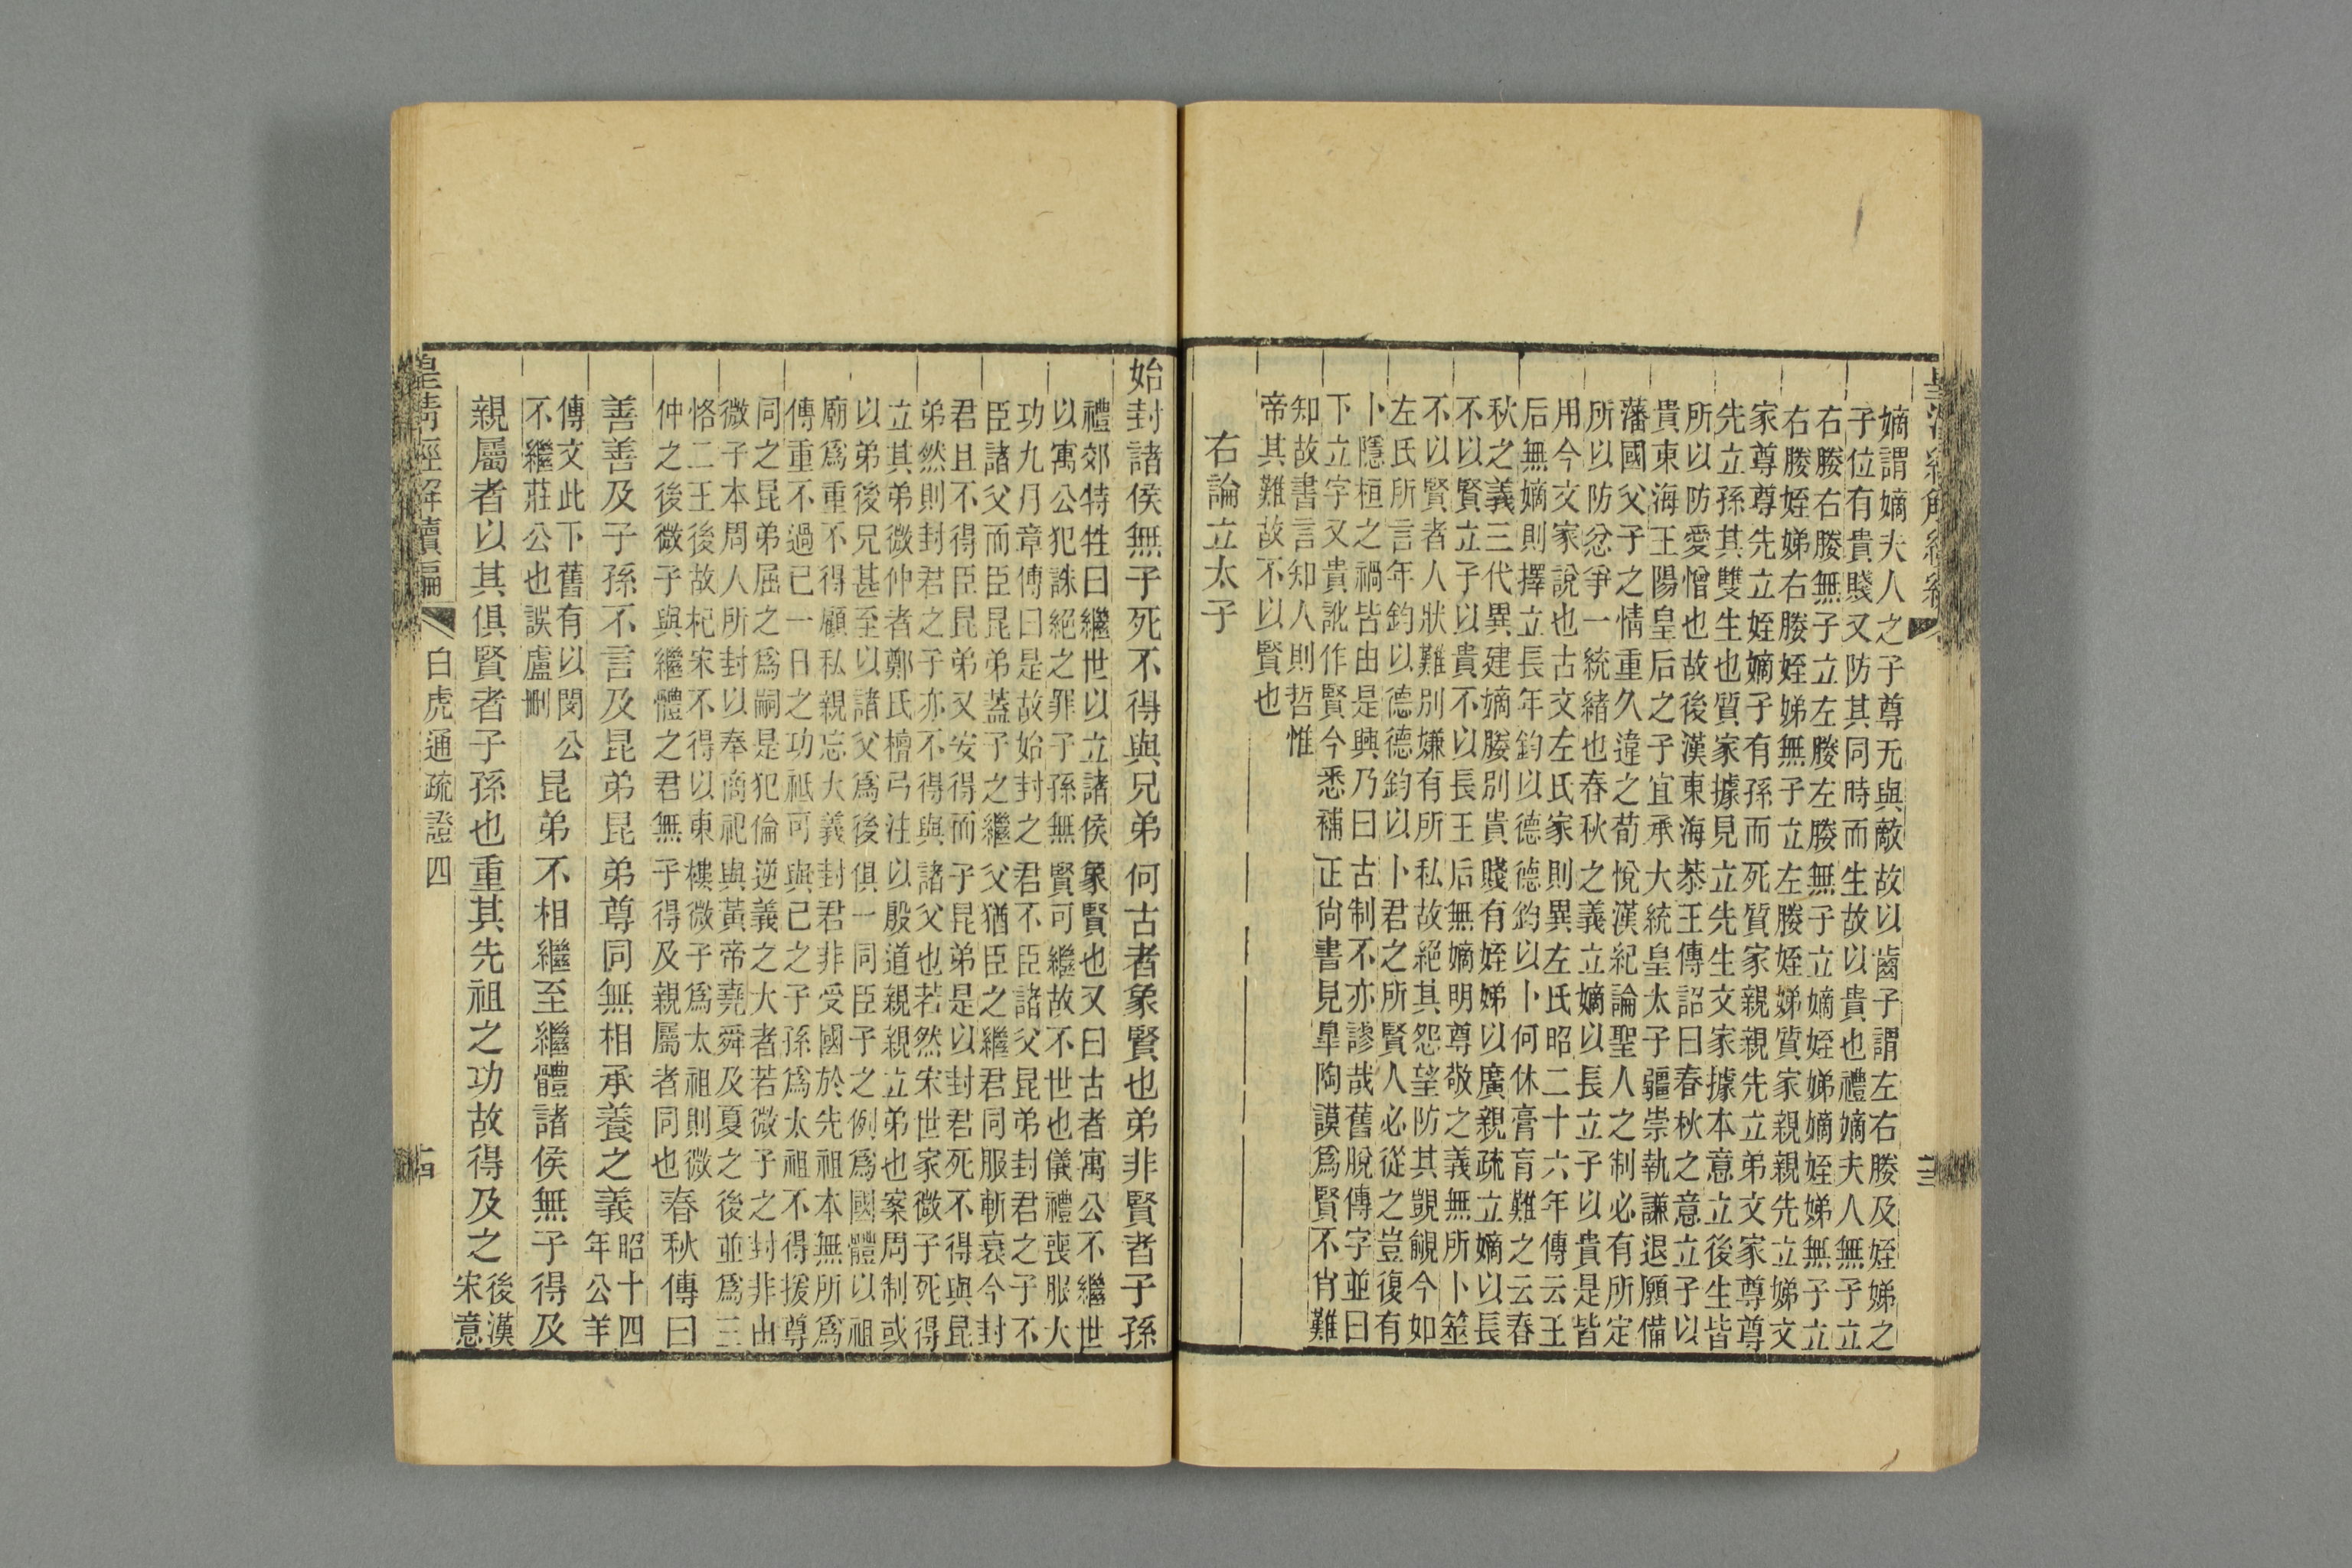 嫡謂嫡夫人之子尊无與敵故以齒子謂左右媵及姪娣之
子位有貴賤又防其同時而生故以貴也禮嫡夫人無子立
右媵右媵無子立左媵左媵無子立嫡姪娣嫡姪娣無子立
右媵姪娣右媵姪娣無子立左媵姪娣質家親親先立娣文
家尊尊先立姪嫡子有孫而死質家親親先立弟文家尊尊
先立孫其雙生也質家據見立先生文家據本意立後生皆
所以防愛憎也故後漢東海恭王傳詔曰春秋之意立子以
貴東海王陽皇后之子宜承大統皇太子疆崇執謙退願備
藩國父子之情重久違之荀悅漢紀論聖人之制必有所定
所以防忿爭一統緒也春秋之義立嫡以長立子以貴是皆
用今文家說也古文左氏家則異左氏昭二十六年傳云王
后無嫡則擇立長年鈞以德德鈞以卜何休膏肓難之云春
秋之義三代異建嫡媵別貴賤有姪娣以廣親疏立嫡以長
不以賢立子以貴不以長王后無嫡明尊敬之義無所卜筮
不以賢者人狀難別嫌有所私故絕其怨望防其覬覦今如
左氏所言年鈞以德德鈞以卜君之所賢人必從之豈復有
卜隱桓之禍皆由是興乃曰古制不亦謬哉舊脫傳字並曰
下立字又貴訛作賢今悉補正尙書見臯陶謨爲賢不肖難
知故書言知人則哲惟
帝其難故不以賢也
右論立太子
始封諸侯無子死不得與兄弟何古者象賢也弟非賢者子孫
禮郊特牲曰繼世以立諸侯象賢也又曰古者寓公不繼世
以寓公犯誅絕之罪子孫無賢可繼故不世也儀禮喪服大
功九月章傳曰是故始封之君不臣諸父昆弟封君之子不
臣諸父而臣昆弟蓋子之繼父猶臣之繼君同服斬衰今封
君且不得臣昆弟又安得而子昆弟是以封君死不得與昆
弟然則封君之子亦不得與諸父也若然宋世家微子死得
立其弟微仲者鄭氏檀弓注以殷道親親立弟也案周制或
以弟後兄甚至以諸父爲後俱一同臣子之例爲國體以祖
廟爲重不得顧私親忘大義封君非受國於先祖本無所爲
傳重不過已一日之功祗可與已之子孫爲太祖不得援尊
同之昆弟屈之爲嗣是犯倫逆義之大者若微子之封非由
微子本周人所封以奉商祀與黃帝堯舜及夏之後並爲三
恪二王後故杞宋不得以東樓微子爲太祖則微
仲之後微子與繼體之君無子得及親屬者同也春秋傳曰
善善及子孫不言及昆弟昆弟尊同無相承養之義昭十四
年公羊
傳文此下舊有以閔公
不繼莊公也誤盧刪昆弟不相繼至繼體諸侯無子得及
親屬者以其俱賢者子孫也重其先祖之功故得及之後漢
宋意
皇清經解續編 白虎通疏證四 十四